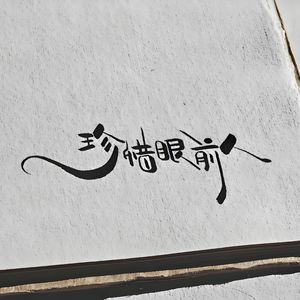 珍惜眼前人